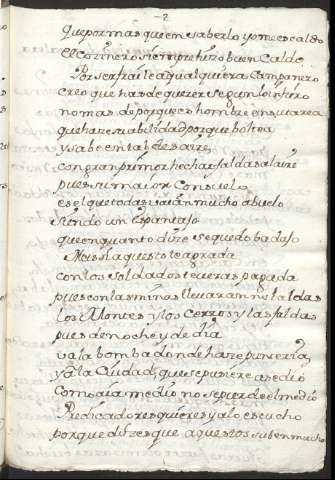 2
que por mas que en saberlo yo me escaldo
el Cozinero siempre hizo buen Caldo
Por ser fraile aqualquiera Campanero
creo que has de querer segun lo infiero
no mas de porque es hombre en su tarea
que hace su abilidad porque boltea
y sabe en
con gran primor hechar faldas al aire
pues si maior Consuelo
es el que todas saían mucho abuelo
siendo un Espantajo
que en quanto dize se quedo badajo
Mas si aquesto te agrada
con los soldados te veras pagada
pues con las minas llevaran
los Montes y los Cerros y las faldas
pues de noche y de dia
va la bomba donde haze punteria
y a la Ciudad que se pusiere asedio
Como aia medio no se pierde el medio
Predicadores quieres ya lo escucho
porque dizes que aquestos suben mucho